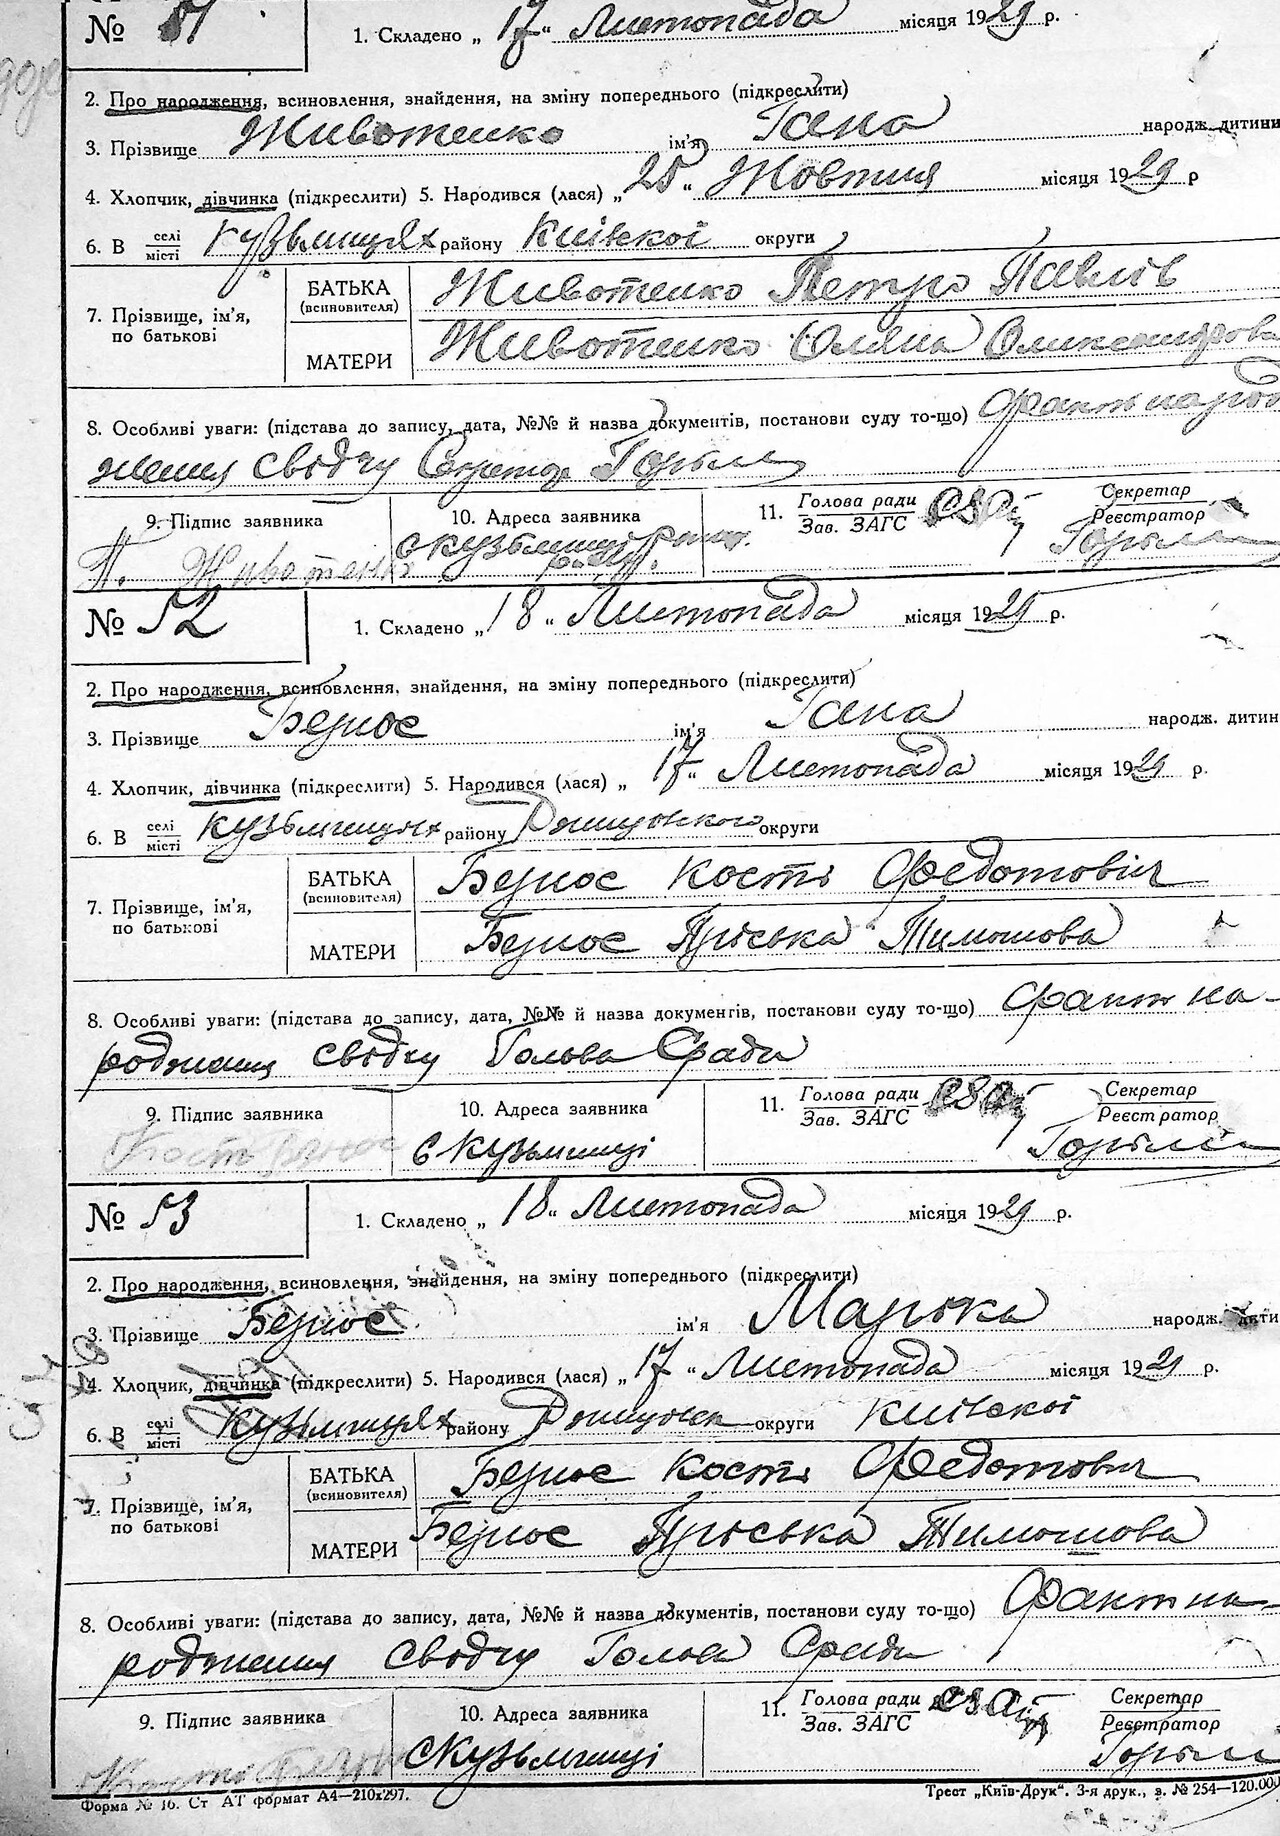 № 51 1. Складено „17“ Листопада місяця 1929 р.
2. Про народження, всиновлення, знайдення, на зміну попереднього (підкреслити)
3. Прізвище Животенко ім'я Гана народж. дитини
4. Хлопчик, дівчинка (підкреслити) 5. Народився (лася) „25“ Жовтня місяця 1929 р
6. В селі/місті Кузьминцях району Київскої округи
7. Прізвище, ім'я, по батькові
БАТЬКА (всиновителя) Животенко Петро Павлів
МАТЕРИ Животенко Оляна Олександрова
8. Особливі уваги: (підстава до запису, дата, №№ й назва документів, постанови суду то-що) Факт народ
ження сводчу Секретар
9. Підпис заявника 10. Адреса заявника 11. Голова ради/Зав. ЗАГС Секретар/Реєстратор
П. Животенко с Кузьминці
№ 52 1. Складено „18“ Листопада місяця 1929 р.
2. Про народження, всиновлення, знайдення, на зміну попереднього (підкреслити)
3. Прізвище Безнос ім'я Гана народж. дитин
4. Хлопчик, дівчинка (підкреслити) 5. Народився (лася) „17“ Листопада місяця 1929 р.
6. В селі/місті Кузьминцях району округи
7. Прізвище, ім'я, по батькові
БАТЬКА (всиновителя) Безнос Кость Федотовіч
МАТЕРИ Безнос Пріська Тимошова
8. Особливі уваги: (підстава до запису, дата, №№ й назва документів, постакови суду то-що) Факт на-
родження сводчу Голова Сради
9. Підпис заявника 10. Адреса заявника 11. Голова ради/Зав. ЗАГС Секретар/Реєстратор
Кость Безнос с Кузьминці
№ 53 1. Складено „18“ Листопада місяця 1929 р.
2. Про народження, всиновлення, знайдення, на зміну попереднього (підкреслити)
3. Прізвище Безнос ім'я Марька народж. дити
4. Хлопчик, дівчинка (підкреслити) 5. Народився (лася) „17“ Листопада місяця 1929 р.
6. В селі/місті Кузьминцях району округи Київскої
7. Прізвище, ім'я, по батькові
БАТЬКА (всиновителя) Безнос Кость Федотович
МАТЕРИ Безнос Пріська Тимошова
8. Особливі уваги: (підстава до запису, дата, №№ й назва документів, постанови суду то-що) Факт на-
родження сводчу Голова Сради
9. Підпис заявника 10. Адреса заявника 11. Голова ради/Зав. ЗАГС Секретар/Реєстратор
с Кузьминці
Форма № 16. Ст АТ формат А4—210х297. Трест „Київ-Друк“. 3-я друк., з. № 254—120.000